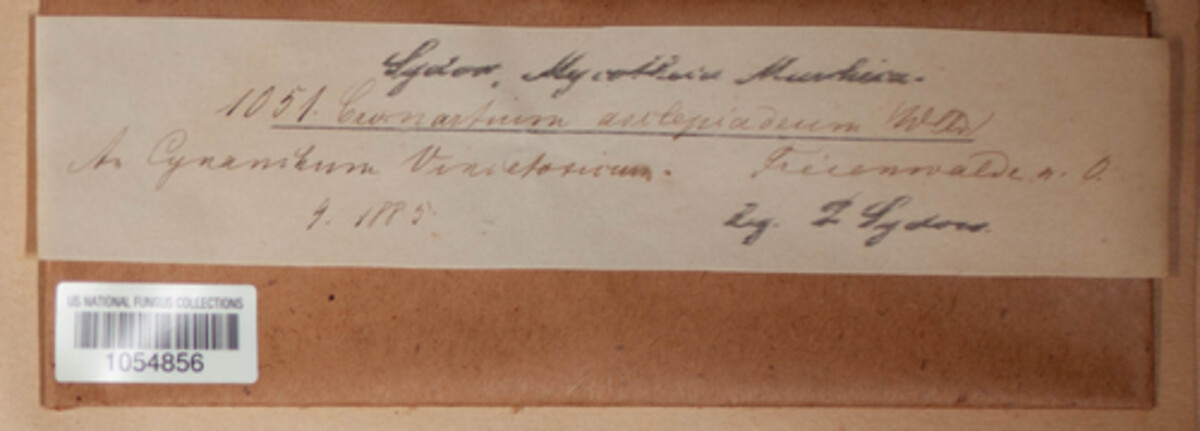 Sydow, Mycotheca Marchica.
1051. Cronartium asclepiadeum (Willd)
An Cynanchum Vincetoxicum. Freienwalde a. O.
9. 1885. Leg. P. Sydow.
US NATIONAL FUNGUS COLLECTIONS
1054856